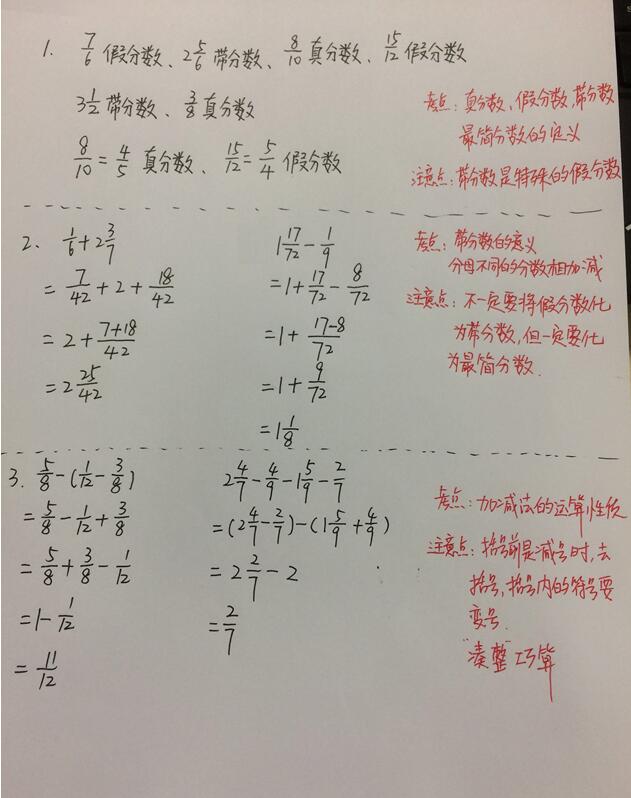 1. 7/6 假分数、2 5/6 带分数、8/10 真分数、15/12 假分数
3 1/2 带分数、3/8 真分数
8/10 = 4/5 真分数、 15/12 = 5/4 假分数
考点: 真分数、假分数,带分数
最简分数的定义
注意点: 带分数是特殊的假分数
2. 1/6 + 2 3/7
= 7/42 + 2 + 18/42
= 2 + (7+18)/42
= 2 25/42
1 17/72 - 1/9
= 1 + 17/72 - 8/72
= 1 + (17-8)/72
= 1 + 9/72
= 1 1/8
考点: 带分数的意义
分母不同的分数相加减
注意点: 不一定要将假分数化
为带分数,但一定要化
为最简分数.
3. 5/8 - (1/12 - 3/8)
= 5/8 - 1/12 + 3/8
= 5/8 + 3/8 - 1/12
= 1 - 1/12
= 11/12
2 4/7 - 4/9 - 1 5/9 - 2/7
= (2 4/7 - 2/7) - (1 5/9 + 4/9)
= 2 2/7 - 2
= 2/7
考点: 加减法的运算性质
注意点: 括号前是减号时,去
括号,括号内的符号要
变号.
"凑整"巧算